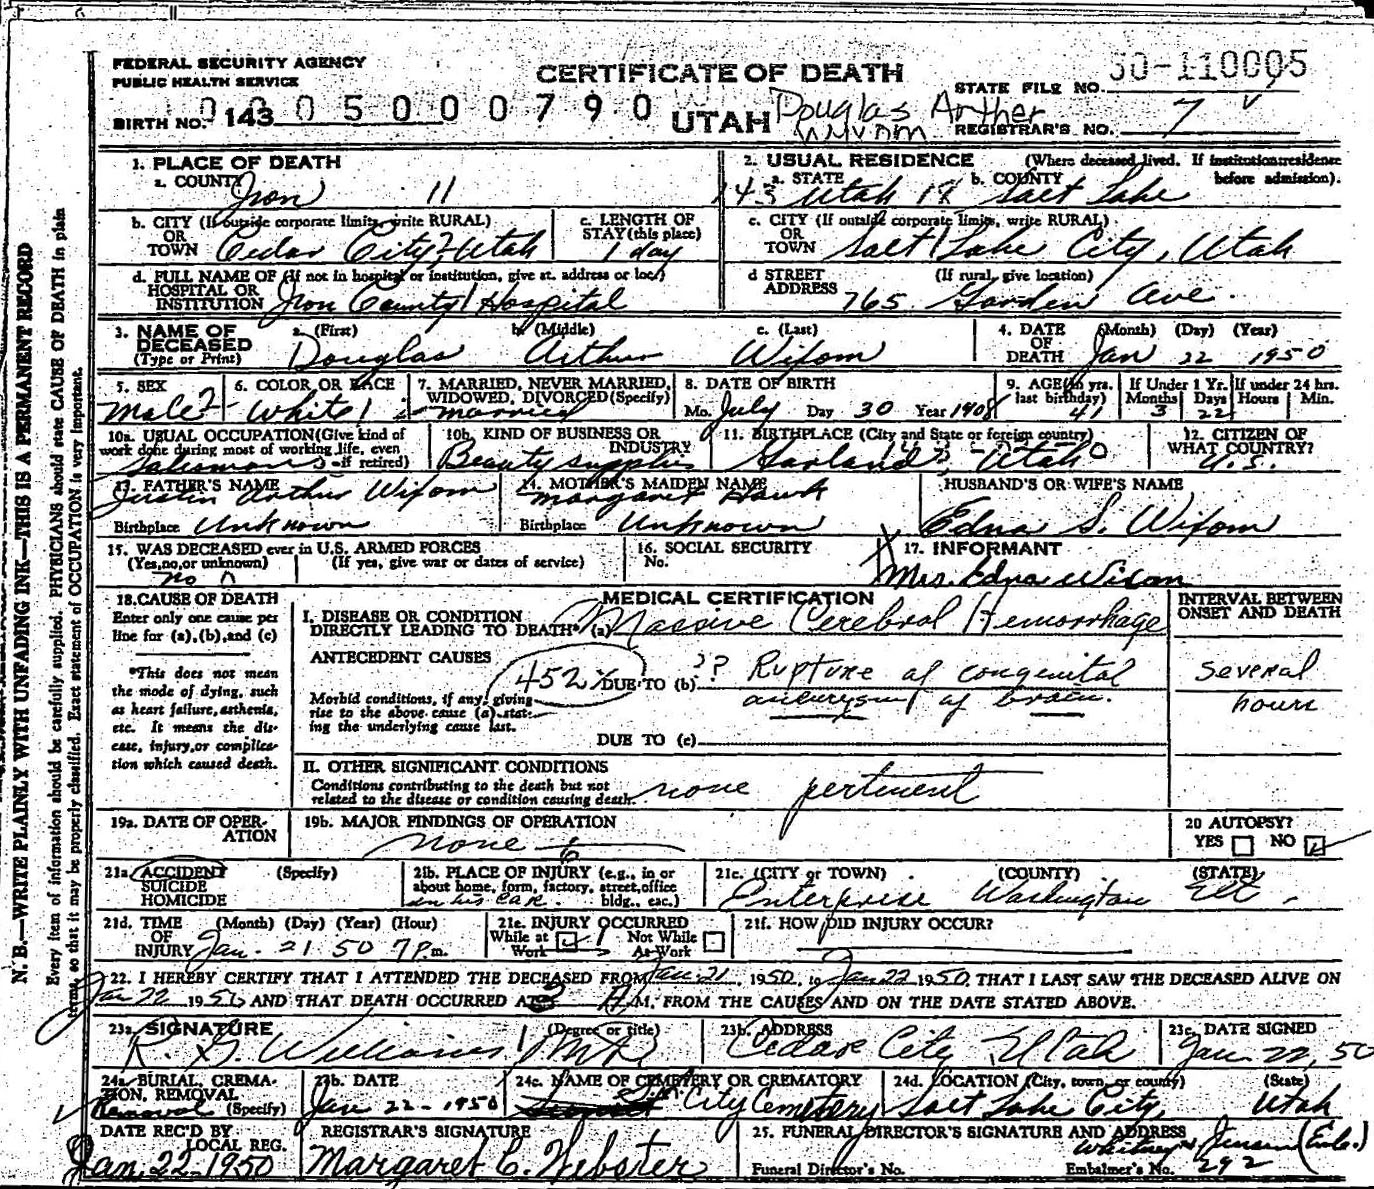 FEDERAL SECURITY AGENCY
PUBLIC HEALTH SERVICE
CERTIFICATE OF DEATH
STATE FILE NO. 50-110005
BIRTH NO. 143 05000790
UTAH
Douglas Arther
REGISTRAR'S NO. 7
1. PLACE OF DEATH
a. COUNTY Iron 11
2. USUAL RESIDENCE (Where deceased lived. If institution: residence before admission).
a. STATE 143 Utah 18 b. COUNTY Salt Lake
b. CITY (If outside corporate limits, write RURAL) OR TOWN Cedar City, Utah
c. LENGTH OF STAY (this place) 1 day
c. CITY (If outside corporate limits, write RURAL) OR TOWN Salt Lake City, Utah
d. FULL NAME OF (If not in hospital or institution, give st. address or loc.) HOSPITAL OR INSTITUTION Iron County Hospital
d STREET ADDRESS (If rural, give location) 765 Garden Ave.
3. NAME OF DECEASED (Type or Print)
a. (First) Douglas b. (Middle) Arthur c. (Last) Wixom
4. DATE OF DEATH (Month) (Day) (Year) Jan 22 1950
5. SEX Male
6. COLOR OR RACE White
7. MARRIED, NEVER MARRIED, WIDOWED, DIVORCED (Specify) married
8. DATE OF BIRTH Mo. July Day 30 Year 1908
9. AGE (In yrs. last birthday) 41
If Under 1 Yr. Months 3 Days 22
If under 24 hrs. Hours Min.
10a. USUAL OCCUPATION (Give kind of work done during most of working life, even if retired) Salesman
10b. KIND OF BUSINESS OR INDUSTRY Beauty supplies
11. BIRTHPLACE (City and State or foreign country) Garland, Utah
12. CITIZEN OF WHAT COUNTRY? U.S.
13. FATHER'S NAME Justin Arthur Wixom
Birthplace Unknown
14. MOTHER'S MAIDEN NAME Margaret Hawk
Birthplace Unknown
HUSBAND'S OR WIFE'S NAME
Edna S. Wixom
15. WAS DECEASED ever in U.S. ARMED FORCES
(Yes, no, or unknown) (If yes, give war or dates of service)
no
16. SOCIAL SECURITY No.
17. INFORMANT
Mrs. Edna Wixom
18. CAUSE OF DEATH
Enter only one cause per line for (a), (b), and (c)
*This does not mean the mode of dying, such as heart failure, asthenia, etc. It means the disease, injury, or complication which caused death.
MEDICAL CERTIFICATION
INTERVAL BETWEEN ONSET AND DEATH
I. DISEASE OR CONDITION DIRECTLY LEADING TO DEATH* (a) Massive Cerebral Hemorrhage
ANTECEDENT CAUSES
Morbid conditions, if any, giving rise to the above cause (a) stating the underlying cause last.
452X DUE TO (b) ?? Rupture of congenital aneurysm of brain.
several hours
DUE TO (c)
II. OTHER SIGNIFICANT CONDITIONS
Conditions contributing to the death but not related to the disease or condition causing death. none pertinent
19a. DATE OF OPERATION
19b. MAJOR FINDINGS OF OPERATION
none
20 AUTOPSY?
YES NO
21a. ACCIDENT SUICIDE HOMICIDE (Specify)
21b. PLACE OF INJURY (e.g., in or about home, farm, factory, street, office bldg., etc.) in his car.
21c. (CITY or TOWN) (COUNTY) (STATE)
Enterprise Washington Ut.
21d. TIME OF INJURY (Month) (Day) (Year) (Hour) Jan. 21 50 7 P.m.
21e. INJURY OCCURRED
While at Work Not While At Work
21f. HOW DID INJURY OCCUR?
22. I HEREBY CERTIFY THAT I ATTENDED THE DECEASED FROM Jan. 21, 1950, to Jan 22 1950, THAT I LAST SAW THE DECEASED ALIVE ON
Jan 22 1950 AND THAT DEATH OCCURRED AT 3 A.M. FROM THE CAUSES AND ON THE DATE STATED ABOVE.
23a. SIGNATURE (Degree or title)
R. G. Williams MD
23b. ADDRESS
Cedar City Utah
23c. DATE SIGNED
Jan 22, 50
24a. BURIAL, CREMATION, REMOVAL (Specify) Removal
23b. DATE
Jan 22-1950
24c. NAME OF CEMETERY OR CREMATORY
City Cemetery
24d. LOCATION (City, town, or county) (State)
Salt Lake City, Utah
DATE REC'D BY LOCAL REG.
Jan. 22-1950
REGISTRAR'S SIGNATURE
Margaret C. Webster
25. FUNERAL DIRECTOR'S SIGNATURE AND ADDRESS
Funeral Director's No. Embalmer's No. 292
N. B.—WRITE PLAINLY WITH UNFADING INK—THIS IS A PERMANENT RECORD
Every item of information should be carefully supplied. PHYSICIANS should state CAUSE OF DEATH in plain
terms, so that it may be properly classified. Exact statement of OCCUPATION is very important.